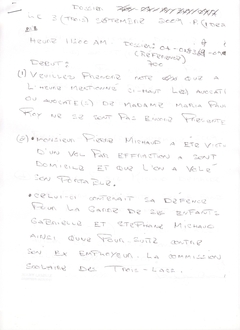 DOSSIER
LE 3 (TROIS) SEPTEMBRE 2009
HEURE 11:00 AM DOSSIER: 04-
(REFERENCE)
DEBUT:
(1) VEUILLEZ PRENDRE NOTE QUE A
L'HEURE MENTIONNÉ CI-HAUT LES AVOCATS
OU AVOCATE(S) DE MADAME MARIA
NE SE SONT PAS ENCOR PRESENTÉ
(2) • MONSIEUR PIERRE MICHAUD A ÉTÉ VICTI
D'UN VOL PAR EFFRACTION A SONT
DOMICILE ET QUE L'ON A VOLÉ
SON PORTATEUR.
• CELUI-CI CONTENAIT SA DEFENSE
POUR LA GARDE DE SES ENFANTS
GABRIELLE ET STEPHANE MICHAUD
AINSI QU'UNE POURSUITE CONTRE
SON EX EMPLOYEUR. LA COMMISSION
SCOLAIRE DES TROIS-LACS.